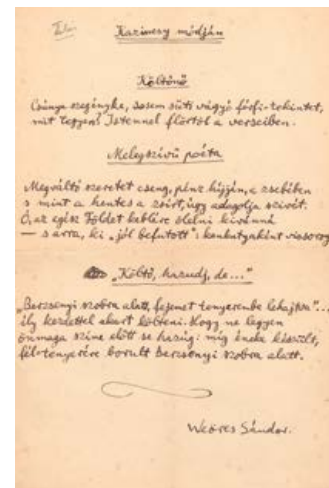 Kazinczy módján
Költőnő
Csúnya szegényke, sosem süti vágyó férfi-tekintet,
mit tegyen? Istennel flörtöl a verseiben.
Melegszívű poéta
Megváltó szeretet cseng, pénz híjján, a zsebében
s mint a hentes a zsírt, úgy adagolja szivét.
Ó, az egész Földet keblére ölelni kivánná
— s arra, ki „jól befutott”: kankutyaként vicsorog
„Költő, hazudj, de...”
„Berzsenyi szobra alatt, fejemet tenyerembe lehajtva”...
ily kezdettel akart költeni. Hogy ne legyen
önmaga szine előtt se hazug: míg éneke készült,
féltenyerére borult Berzsenyi szobra alatt.
Weöres Sándor.